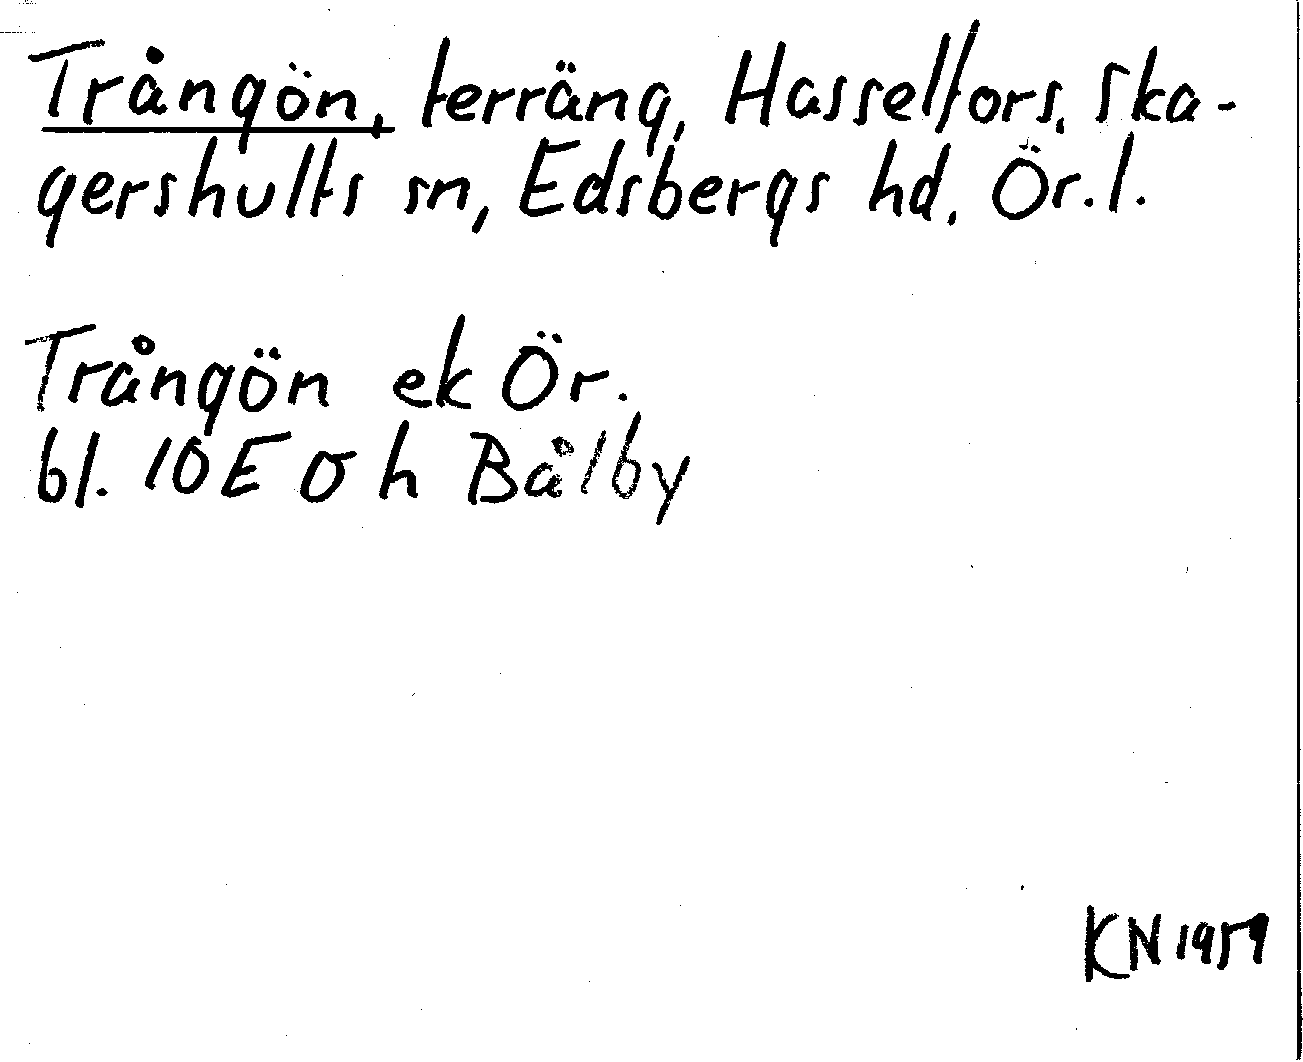 Trångön, terräng, Hasselfors, Ska-
gershults sn, Edsbergs hd, Ör.l.
Trångön ek Ör.
bl. 10E σ h Bålby
KN 1959